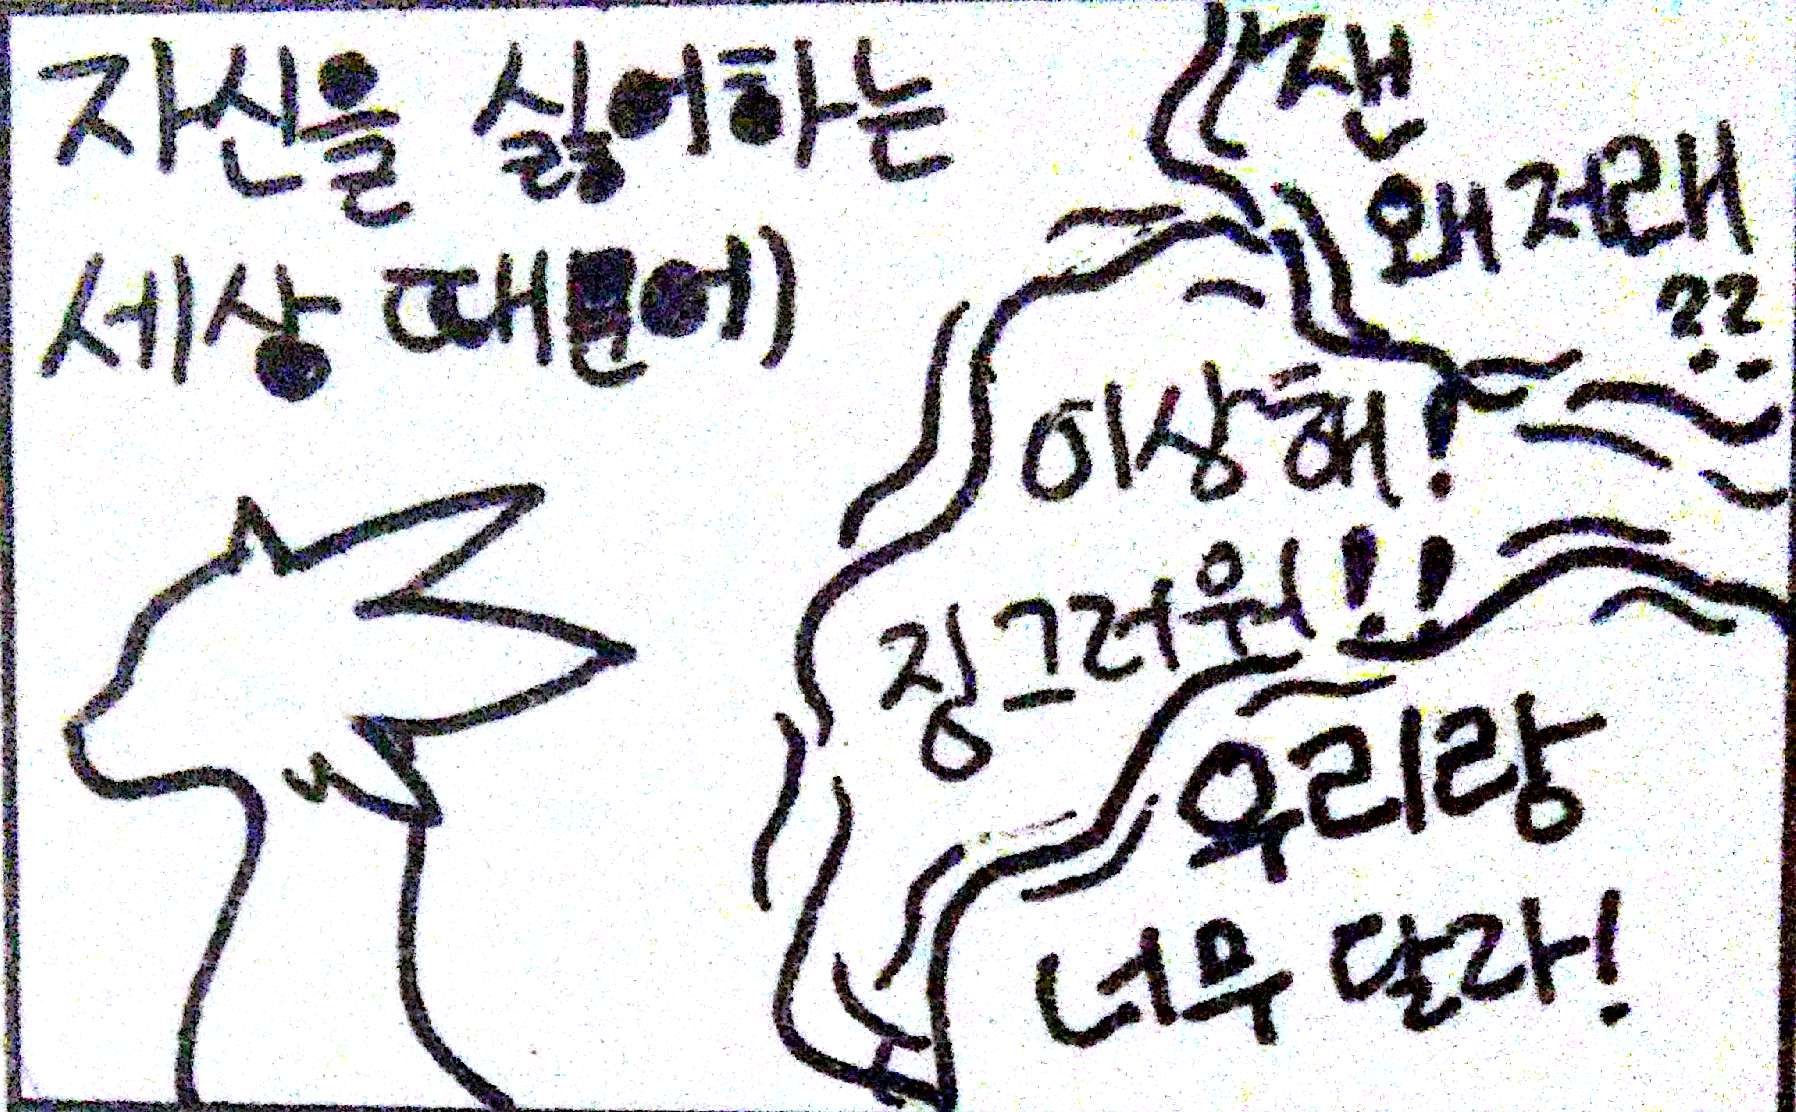 자신을 싫어하는
세상 때문에)
쟨
왜 저래
??
이상해!
징그러워!!
우리랑
너무 달라!